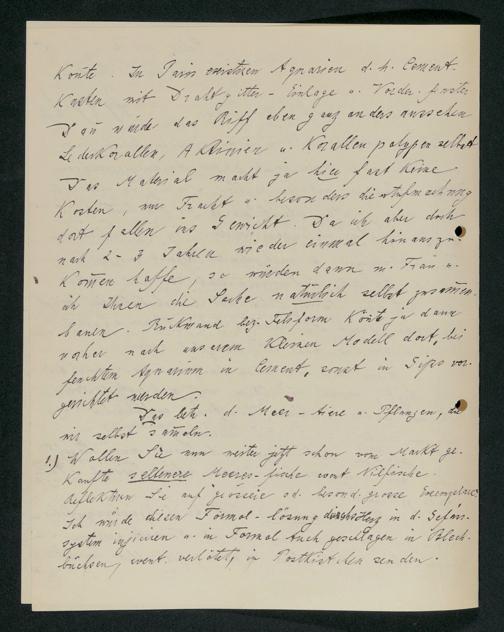 könte. In Paris existiren Aquarien d. h. Cement-
Kasten mit Drahtgitter-Einlage u. Vorder-fenster
Dan würde das Riff eben ganz anders aussehen
Lederkorallen, Aktinien u. Korallenpolypen selbst
Das Material macht ja hier fast keine
Kosten, nur Fracht u. besonders die Aufmachung
dort fallen ins Gewicht. Da ich aber doch
nach 2-3 Jahren wieder einmal hinauszu-
komen hoffe, so würden dann m. Frau u.
ich Ihnen die Sache natürlich selbst zusamen-
bauen. Rückwand bez. Felsform könte ja dann
vorher nach unserem kleinen Modell dort, bei
feuchtem Aquarium in Cement, sonst in Gips vor-
gerichtet werden.
Das betr. d. Meer-tiere u. Pflanzen, die
wir selbst sameln.
1.) Wollen Sie nun weiter jetzt schon vom Markt ge-
kaufte seltenere Meeres-fische event Nilfische.
Reflektiren Sie auf grosse od. besond. grosse Exemplare?
Ich würde diesen Formol-lösung durchs Herz in d. Gefäss-
system injiciren u. in Formol tuch geschlagen in Blech-
büchsen, event. verlötet, in Postkistchen senden.